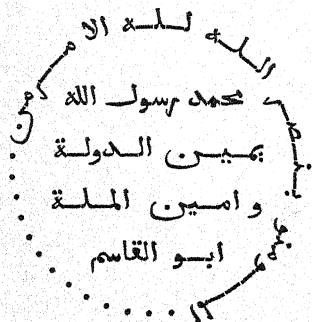 لله الا مر من . . . . . . . . . بنصر الله
محمد رسول الله
يمين الدولة
و امين الملة
ابو القاسم